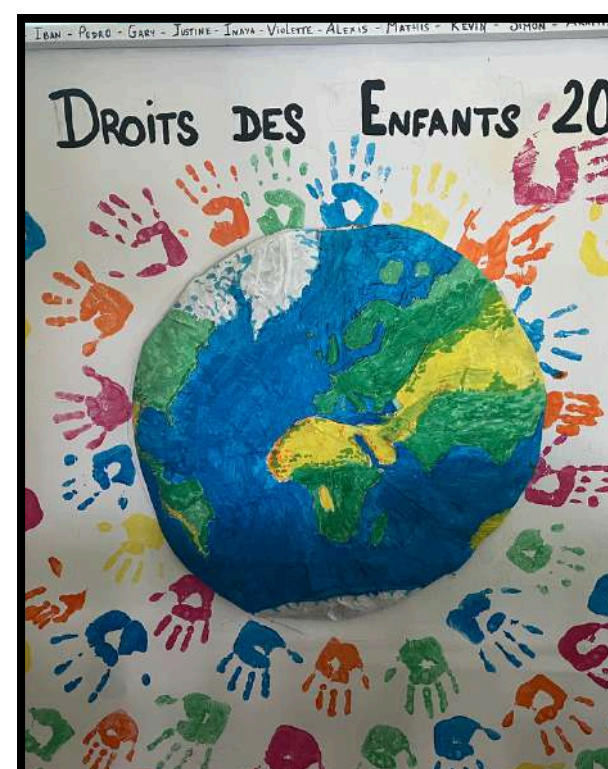 IBAN - PEDRO - GARY - JUSTINE - INAYA - VIOLETTE - ALEXIS - MATHIS - KEVIN - SIMON -
DROITS DES ENFANTS 20